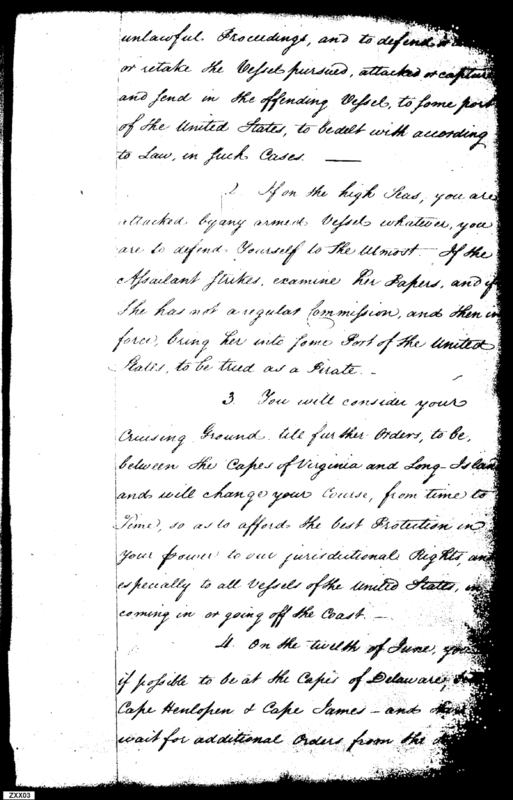 unlawful Proceedings, and to defend
or retake the Vessel pursued, attacked or capture
and send in the offending Vessel, to some port
of the United States, to be delt with according
to Law, in such Cases. —
2 If on the high Seas, you are
attacked by any armed Vessel whatever, you
are to defend Yourself to the Utmost — If the
Assailant strikes, examine her Papers, and if
She has not a regular Commission, and then in
force, bring her into some Port of the United
States, to be tried as a Pirate. —
3. You will consider your
Cruising Ground till further Orders, to be,
between the Capes of Virginia and Long-Islan
and will change your Course, from time to
Time, so as to afford the best Protection in
your power to our jurisdictional Rights, and
especially to all Vessels of the United States, in
coming in or going off the Coast. —
4. On the twelth of June, you
if possible to be at the Capes of Delaware,
Cape Henlopen & Cape James — and
wait for additional Orders from the
ZXX03